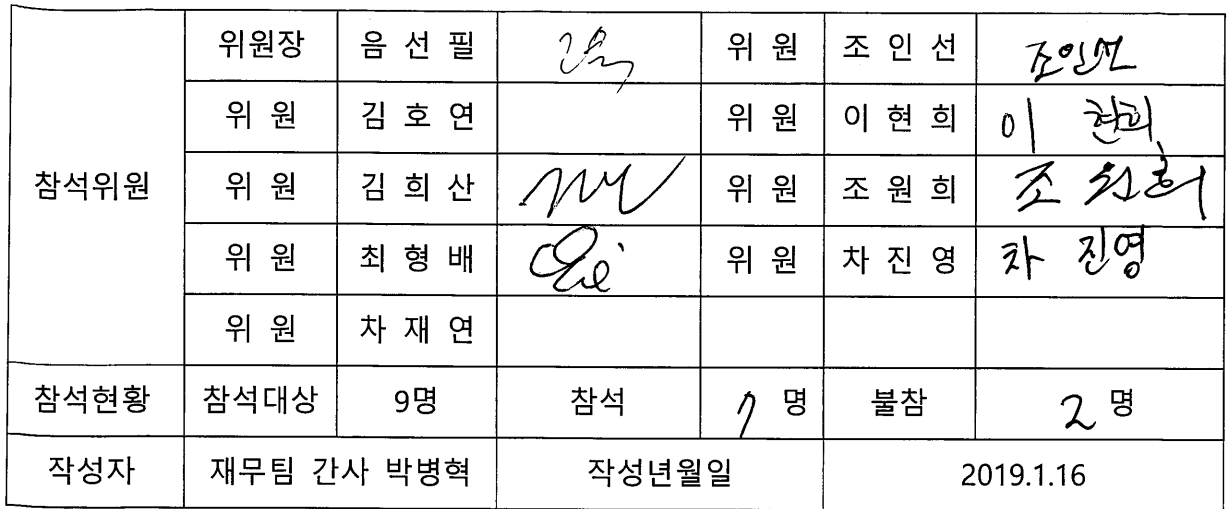 위원장 음 선 필 위 원 조 인 선 조인선
위 원 김 호 연 위 원 이 현 희 이 현희
참석위원 위 원 김 희 산 위 원 조 원 희 조 원희
위 원 최 형 배 위 원 차 진 영 차 진영
위 원 차 재 연
참석현황 참석대상 9명 참석 7 명 불참 2 명
작성자 재무팀 간사 박병혁 작성년월일 2019.1.16